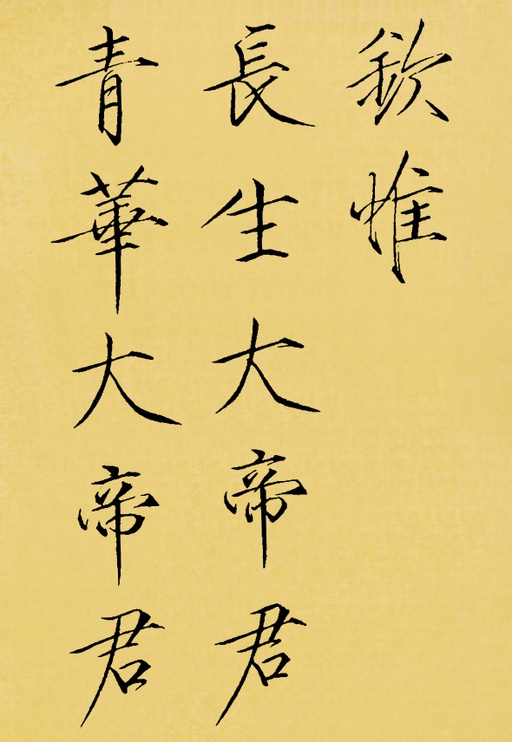 欽惟
長生大帝君
青華大帝君